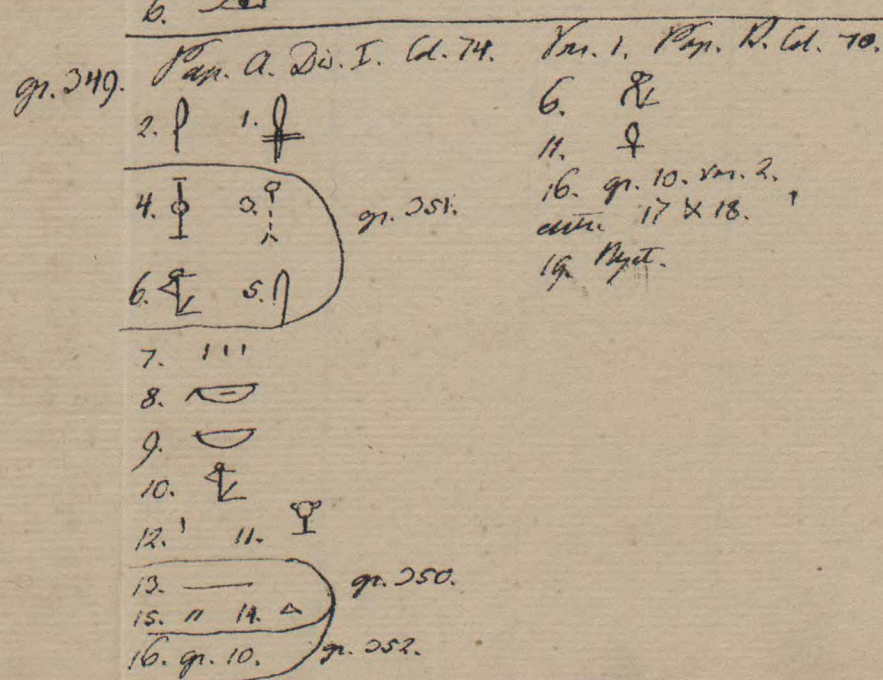 6.
gr. 349. Pap. A. Div. I. Col. 74.
2. 1.
4. 3. gr. 351.
6. 5.
7. ı ı ı
8.
9.
10.
12. ı 11.
13. — gr. 350.
15. ıı 14.
16. gr. 10. gr. 352.
Var. 1. Pap. R. Col. 70.
6.
11.
16. gr. 10. var. 2.
17 18.
19.